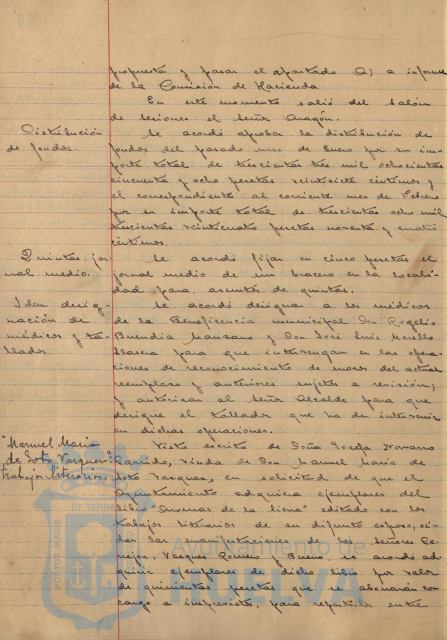 propuesta y pasar el apartado a) a informe
de la Comisión de Hacienda.
En este momento salió del Salón
de sesiones el señor Aragón.
Distribución
de fondos.
Se acordó aprobar la distribución de
fondos del pasado mes de Enero por su im-
porte total de trescientas tres mil ochocientas
cincuenta y ocho pesetas veintisiete céntimos y
el correspondiente al corriente mes de Febrero
por su importe total de trescientas ocho mil
trescientas veinticuatro pesetas noventa y cuatro
céntimos.
Quintas: jor-
nal medio.
Se acordó fijar en cinco pesetas el
jornal medio de un bracero en la locali-
dad para asuntos de quintas.
Idem desig-
nación de
médicos y ta-
llador.
Se acordó designar a los médicos
de la Beneficencia municipal Don Rogelio
Buendía Manzano y Don José Luis
para que intervengan en las opera-
ciones de reconocimiento de mozos del actual
reemplazo y anteriores sujetos a revisión,
y autorizar al señor Alcalde para que
designe el tallador que ha de intervenir
en dichas operaciones.
"Manuel María
de Soto Vasquez"
trabajos literarios.
Visto escrito de Doña Josefa Navarro
Garrido, viuda de Don Manuel María de
Soto Vasquez, en solicitud de que el
Ayuntamiento adquiera ejemplares del
libro "Aromas de la tierra" editado con los
trabajos literarios de su difunto esposo, oí-
das las manifestaciones de los señores
Vasquez Romero y Bueno, se acordó ad-
quirir ejemplares de dicho libro por valor
de quinientas pesetas que se abonarán con
cargo a imprevistos, para repartirlos entre
Ayuntamiento de
HUELVA
PORTUS MARIS
ET TERRAE